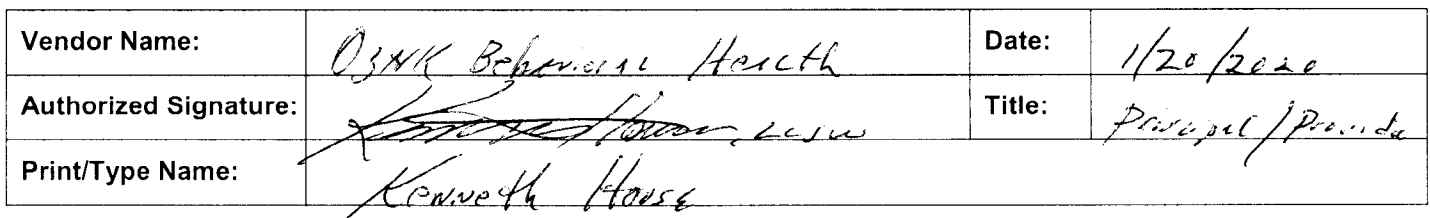 Vendor Name: OzNK Behavioral Health Date: 1/20/2020
Authorized Signature: Kenneth House, LCSW Title: Principal/Provider
Print/Type Name: Kenneth House